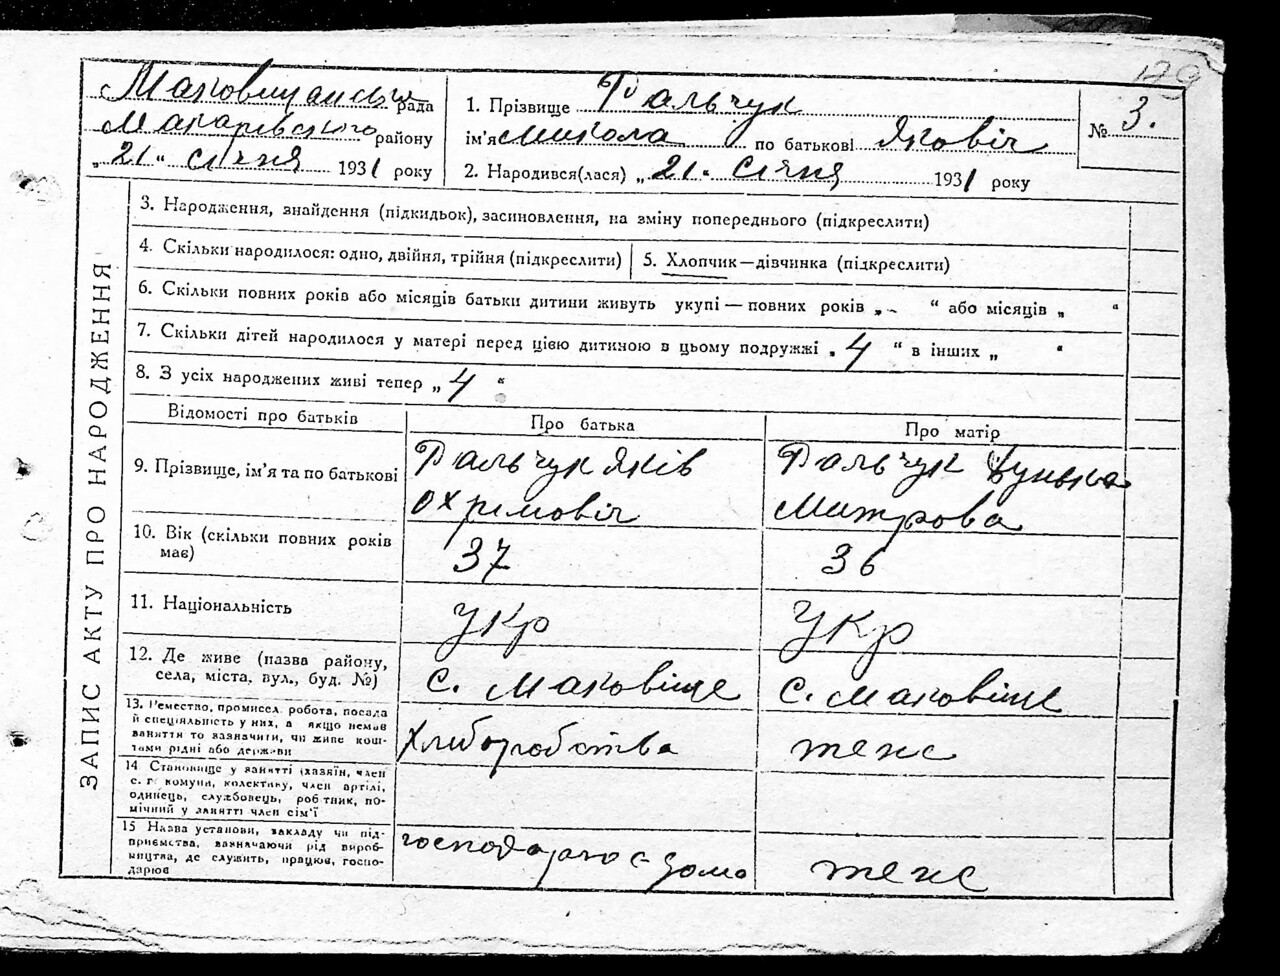 129
Маковищанська рада
Макарівського району
„21“ січня 1931 року
1. Прізвище Фальчук
ім'я Микола по батькові Яковіч
2. Народився(лася) „21“ Січня 1931 року
№ 3.
ЗАПИС АКТУ ПРО НАРОДЖЕННЯ
3. Народження, знайдення (підкидьок), засиновлення, на зміну попереднього (підкреслити)
4. Скільки народилося: одно, двійня, трійня (підкреслити)
5. Хлопчик—дівчинка (підкреслити)
6. Скільки повних років або місяців батьки дитини живуть укупі — повних років „ “ або місяців „ “
7. Скільки дітей народилося у матері перед цією дитиною в цьому подружжі „4“ в інших „ “
8. З усіх народжених живі тепер „4“
Відомості про батьків
Про батька
Про матір
9. Прізвище, ім'я та по батькові
Фальчук Яків
Охрімовіч
Фальчук Дунька
Митрова
10. Вік (скільки повних років
має)
37
36
11. Національність
Укр
Укр
12. Де живе (назва району,
села, міста, вул., буд. №)
с. Маковіще
с. Маковіще
13. Ремество, промисел, робота, посада
й спеціяльність у них, а якщо немає
заняття то зазначити, чи живе кош-
тами рідні або держави
Хлиборобства
теж
14 Становище у занятті (хазяїн, член
с. г комуни, колективу, член артілі,
одинець, службовець, робітник, по-
мічний у занятті член сім'ї
15 Назва установи, закладу чи під-
приємства, зазначаючи рід вироб-
ництва, де служить, працює, госпо-
дарює
дома